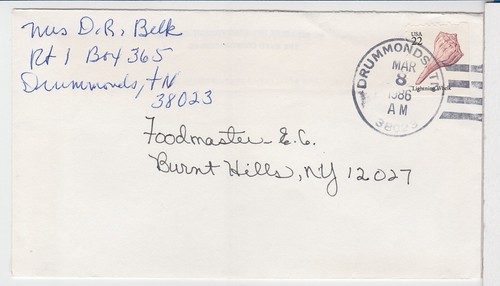 Mrs D.R. Belk
Rt 1 Box 365
Drummonds, TN
38023
USA
22
Lightning Whelk
DRUMMONDS, T
MAR
8
1986
AM
38023
Foodmaster E.C.
Burnt Hills, NY 12027